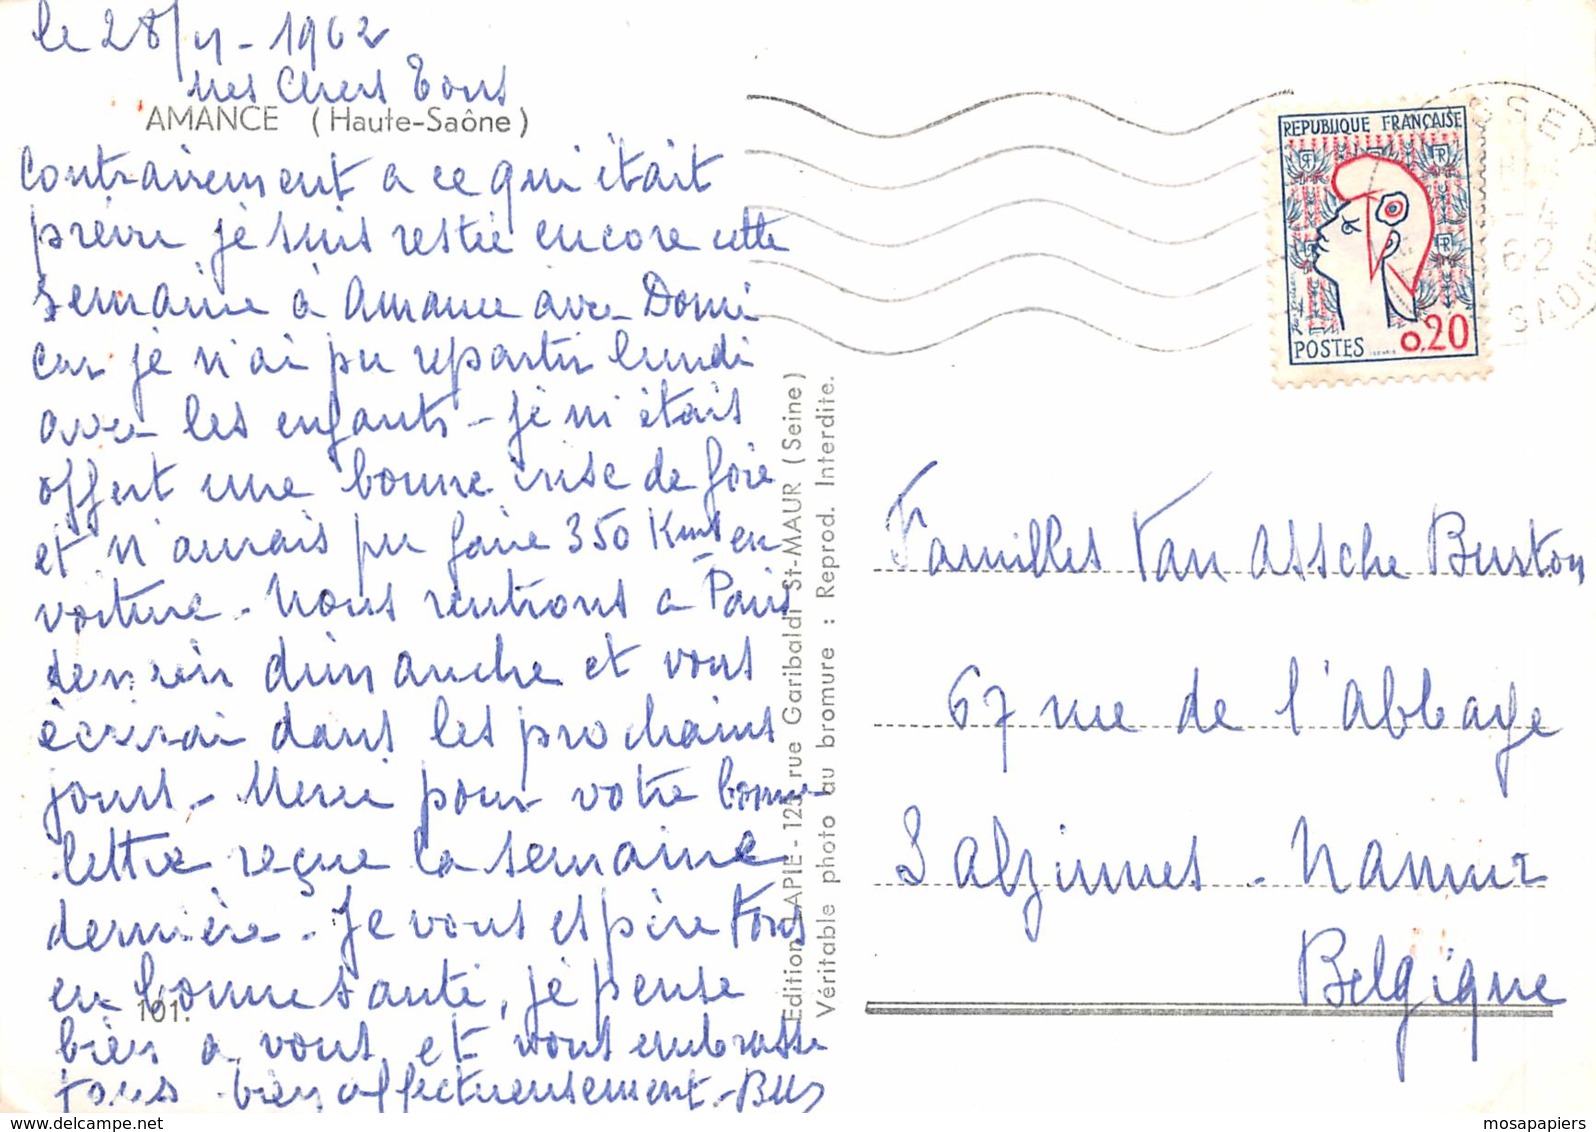 le 28/4 - 1962
Mes Chers Tous
AMANCE (Haute-Saône)
Contrairement a ce qui était
prévu je suis restée encore cette
semaine à Amance avec Domi
car je n'ai pu repartir lundi
avec les enfants - je m'étais
offert une bonne crise de foie
et n'aurais pu faire 350 Kms en
voiture - Nous rentrons a Paris
demain dimanche et vous
écrirai dans les prochains
jours - Merci pour votre bonne
lettre reçue la semaine
dernière - Je vous espère tous
en bonne santé, je pense
101.
bien a vous et vous embrasse
tous bien affectueusement -
Edition LAPIE - 125 rue Garibaldi St-MAUR (Seine)
Véritable photo au bromure : Reprod. Interdite.
REPUBLIQUE FRANÇAISE
POSTES 0.20
-4
62
Familles Van Assche Burton
67 rue de l'Abbaye
Salzinnes - Namur
Belgique
mosapapiers